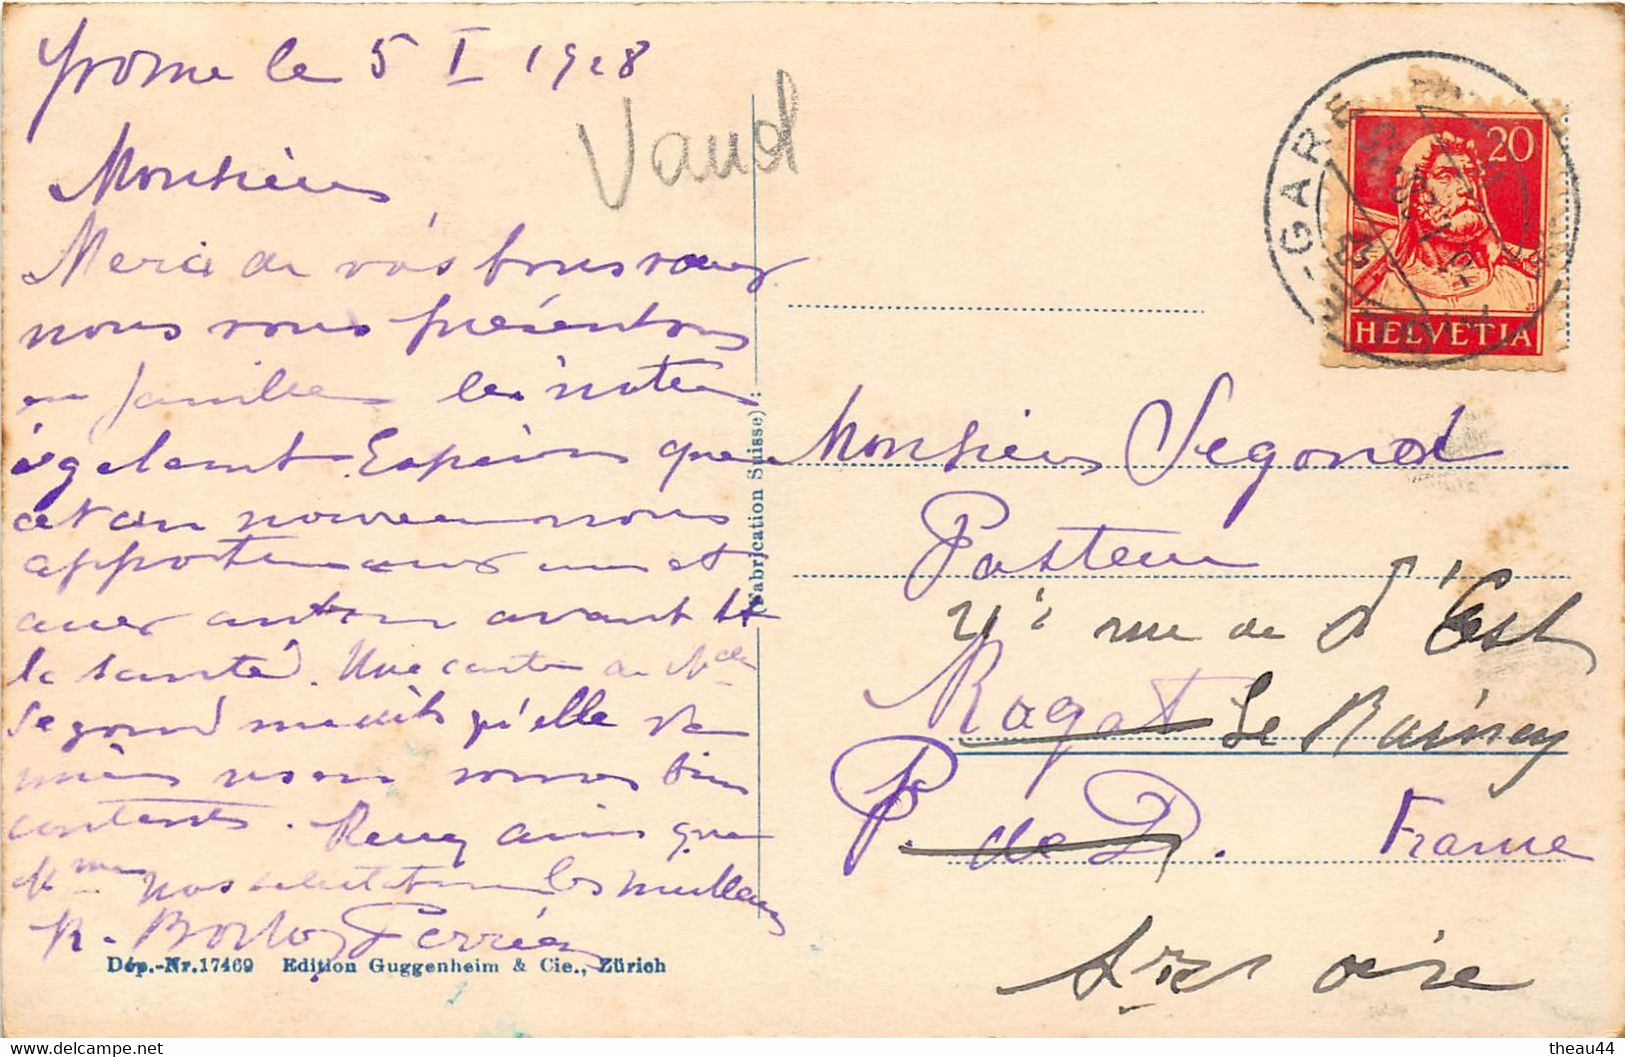 Yvorne le 5 I 1928
Vaud
Monsieur
Merci de vos bons vœux
nous vous présentons
en famille les notres
également. Espérons que
cet an nouveau nous
apporte
avant tt
la santé. Une carte de Mdme
Segond me dit qu'elle va
mieux nous en sommes bien
contents. Recevez ainsi que
Mme nos salutations les meilleures
R.
Dép.-Nr.17469 Edition Guggenheim & Cie., Zürich
(Fabrication Suisse):
GARE
20
HELVETIA
Monsieur Segond
Pasteur
rue de l'Est
Ragat Le Rainey
P. de D. France
Sne et oise
theau44